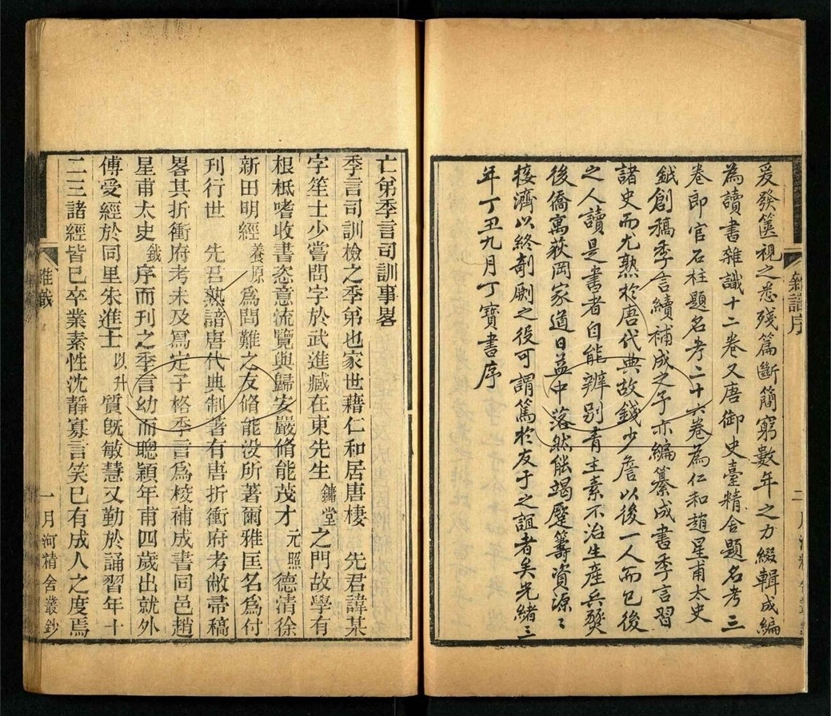 爰發篋視之悉殘篇斷簡窮數年之力綴輯成編
為讀書雜識十二卷又唐御史臺精舍題名考三
卷郎官石柱題名考二十六卷為仁和趙星甫太史
鉞創稿季言續補成之予亦編纂成書季言習
諸史而尤熟於唐代典故錢少詹以後一人而已後
之人讀是書者自能辨別青主素不治生產兵燹
後僑寓菽岡家道日益中落然能竭蹷籌資源〻
接濟以終剞劂之役可謂篤於友于之誼者矣光緒三
年丁丑九月丁寶書序
雜識序
二
月河精舍叢鈔
亡弟季言司訓事畧
季言司訓檢之季弟也家世藉仁和居唐棲　先君諱某
字笙士少嘗問字於武進臧在東先生鏞堂之門故學有
根柢嗜收書恣意流覽與歸安嚴脩能茂才元照德清徐
新田明經養原爲問難之友脩能沒所著爾雅匡名爲付
刊行世　先君熟諳唐代典制著有唐折衝府考敝帚稿
畧其折衝府考未及寫定子格季言爲校補成書同邑趙
星甫太史鉞序而刊之季言幼而聰穎年甫四歲出就外
傅受經於同里朱進士以升質旣敏慧又勤於誦習年十
二三諸經皆已卒業素性沈靜寡言笑已有成人之度焉
雜識
一
月河精舍叢鈔